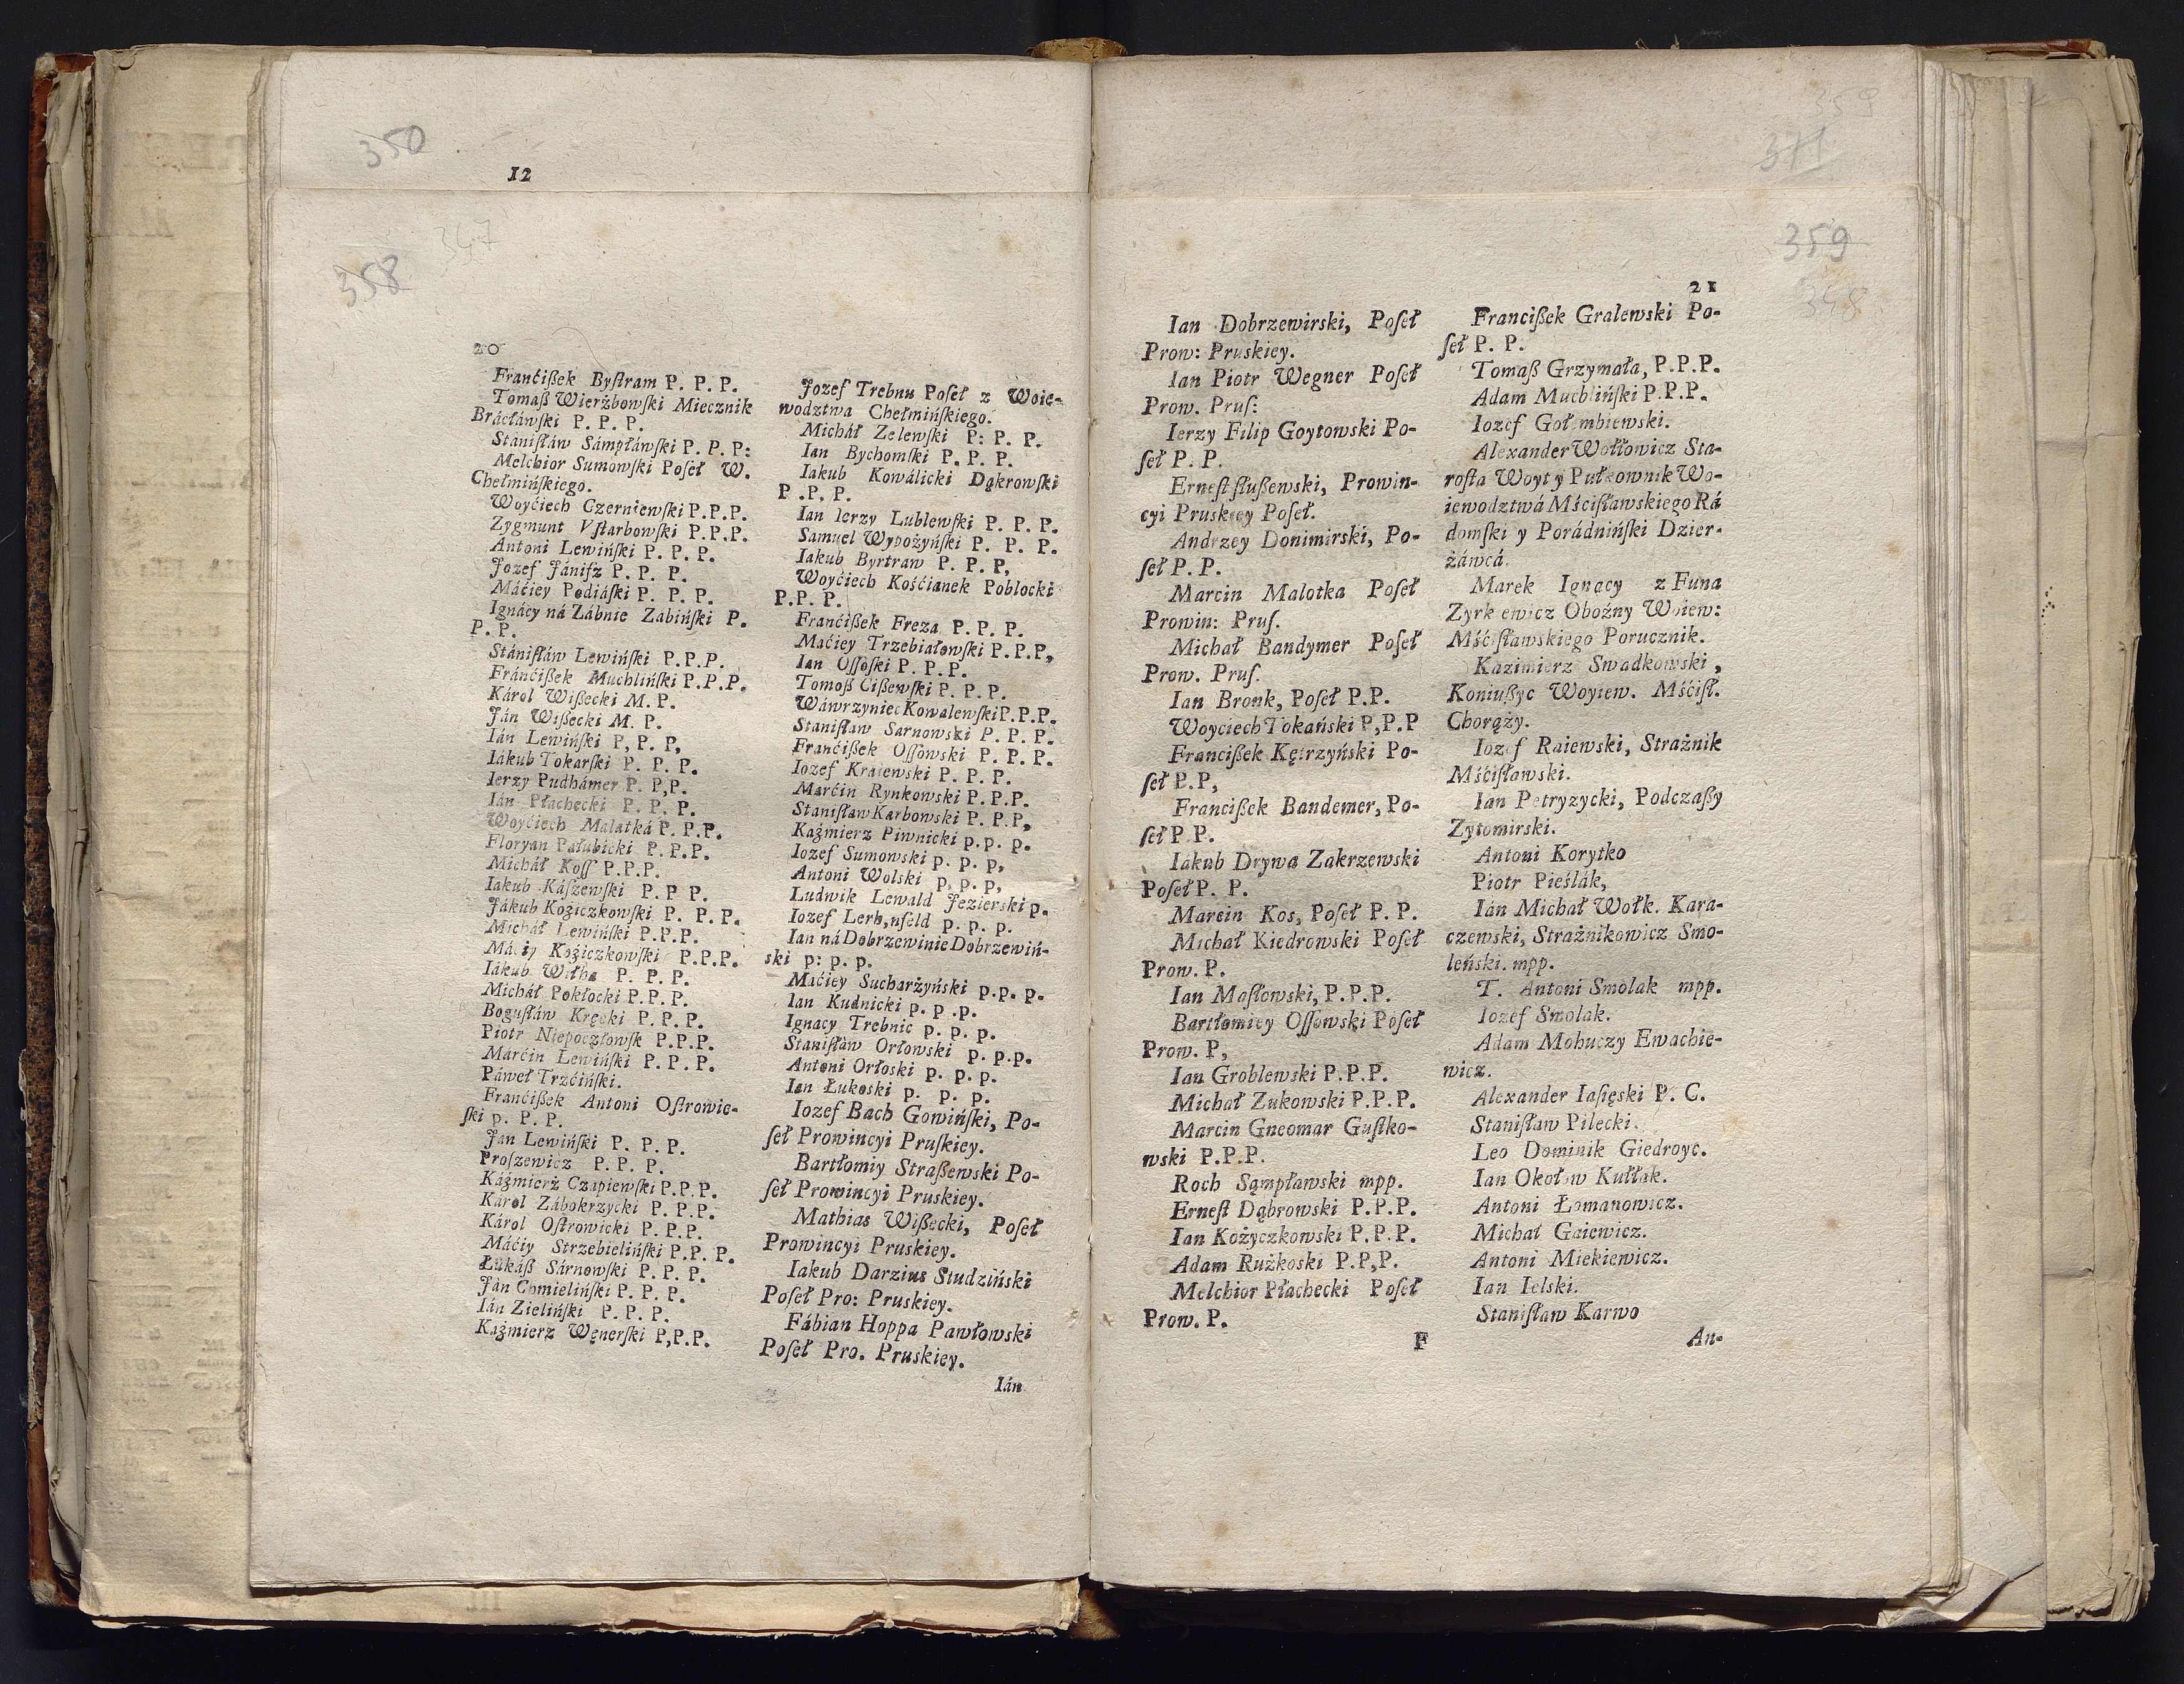 350
12
347
358
20
Franćißek Byſtram P. P. P.
Tomaß Wierżbowſki Miecznik
Brácłáwſki P. P. P.
Stániſłáw Sámpłáwſki P. P. P:
Melchior Sumowſki Poſeł W.
Chełmińſkiego.
Woyćiech Czerniewſki P.P.P.
Zygmunt Vſtarbowſki P.P.P.
Antoni Lewińſki P. P. P.
Jozef Jánifz P. P. P.
Máćiey Podiáſki P. P. P.
Ignácy ná Zábnie Zabińſki P.
P. P.
Stániſłáw Lewińſki P.P.P.
Fránćißek Muchlińſki P.P.P.
Károl Wißecki M. P.
Ján Wißecki M. P.
Ián Lewińſki P, P. P,
Iákub Tokarſki P. P. P.
Ierzy Pudhámer P. P,P.
Ián Płachecki P. P. P.
Woyćiech Malatká P. P.P.
Floryan Pałubicki P. P.P.
Micháł Koſſ P.P.P.
Iakub Káſzewſki P. P P.
Jákub Koźiczkowſki P. P. P.
Micháł Lewińſki P.P.P.
Koźiczkowſki P.P.P.
Iákub P. P. P.
Micháł Pokłocki P.P. P.
Boguſłáw Kręcki P. P.P.
Piotr Niepoczłowſk P.P.P.
Marćin Lewińſki P. P. P.
Páweł Trzćińſki.
Franćißek Antoni Oſtrowic-
ſki p. P. P.
Jan Lewińſki P. P. P.
Proſzewicz P. P. P.
Káźmierż Czapiewſki P.P.P.
Károl Zábokrzycki P. P.P.
Károl Oſtrowicki P. P.P.
Máćiy Strzebielińſki P.P. P.
Łukáß Sárnowſki P. P. P.
Ján Gomielińſki P. P. P.
Ián Zielińſki P. P. P.
Káźmierz Węnerſki P,P.P.
Jozef Trebnu Poſeł z Woie-
wodztwa Chełmińſkiego.
Micháł Zelewſki P: P. P.
Ian Bychomſki P. P. P.
Iakub Kowálicki Dąkrowſki
P .P. P.
Ian Ierzy Lublewſki P. P. P.
Samuel Wypożyńſki P. P. P.
Iakub Byrtraw P. P. P,
Woyćiech Kośćianek Poblocki
P.P. P.
Franćißek Freza P. P. P.
Maćiey Trzebiałowſki P.P.P,
Ian Oſſoſki P. P. P.
Tomoß Cißewſki P. P. P.
Wáwrzyniec Kowalewſki P.P.P.
Staniſław Sarnowski P. P. P.
Franćißek Oſſowſki P. P. P.
Iozef Kraiewſki P. P. P.
Marćin Rynkowſki P. P.P.
Staniſław Karbowſki P. P.P,
Kaźmierz Piwnicki p.p. p.
Iozef Sumowſki p. p. p,
Antoni Wolski p. p. p,
Ludwik Lewald Jezierski p.
Iozef Lerh,nfeld p. p. p.
Ian ná Dobrzewinie Dobrzewiń-
ski p: p. p.
Maćiey Sucharżyński p.p. p.
Ian Kudnicki p. p .p.
Ignacy Trebnic p. p. p.
Staniſław Orłowski p. p.p.
Antoni Orłoski p. p. p.
Ian Łukoski p. p. p.
Iozef Bach Gowińſki, Po-
ſeł Prowincyi Pruſkiey.
Bartłomiy Straßewski Po-
ſeł Prowincyi Pruskiey.
Mathias Wißecki, Poſeł
Prowincyi Pruskiey.
Iakub Darzius Studziński
Poſeł Pro: Pruskiey.
Fábian Hoppa Pawłowski
Poſeł Pro. Pruskiey.
Ián
359
371
359
348
21
Ian Dobrzewirski, Poſeł
Prow: Pruskiey.
Ian Piotr Wegner Poſeł
Prow. Pruſ:
Ierzy Filip Goytowski Po-
ſeł P. P.
Erneſt ſlußewski, Prowin-
cyi Pruskiey Poſeł.
Andrzey Donimirski, Po-
ſeł P. P.
Marcin Malotka Poſeł
Prowin: Pruſ.
Michał Bandymer Poſeł
Prow. Pruſ.
Ian Bronk, Poſeł P.P.
Woyciech Tokański P,P.P
Francißek Kętrzyński Po-
ſeł P.P,
Francißek Bandemer, Po-
ſeł P P.
Iákub Drywa Zakrzewski
Poſeł P. P.
Marcin Kos, Poſeł P. P.
Michał Kiedrowski Poſeł
Prow. P.
Ian Maſłowski, P.P.P.
Bartłomiey Oſſowski Poſeł
Prow. P,
Ian Groblewski P.P.P.
Michał Zukowski P.P.P.
Marcin Gneomar Guſtko-
wski P.P.P.
Roch Sąmpławski mpp.
Erneſt Dąbrowski P.P.P.
Ian Kożyczkowski P.P.P.
Adam Rużkoski P.P,P.
Melchior Płachecki Poſeł
Prow. P.
F
Francißek Gralewski Po-
ſeł P. P.
Tomaß Grzymała, P.P.P.
Adam Muchliński P.P.P.
Iozef Gołembiewski.
Alexander Wołłowicz Sta-
roſta Woyt y Pułkownik Wo-
iewodztwá Mściſławskiego Rá
domſki y Porádniński Dzier-
żáwcá.
Marek Ignacy z Funa
Zyrkiewicz Oboźny Woiew:
Mśćiſławskiego Porucznik.
Kazimierz Swadkowski,
Koniußyc Woyiew. Mśćiſł.
Chorąży.
Iozef Raiewski, Strażnik
Mśćiſławski.
Ian Petryzycki, Podczaßy
Zytomirski.
Antoni Korytko
Piotr Pieślák,
Ián Michał Wołk. Kara-
czewski, Strażnikowicz Smo-
leński. mpp.
T. Antoni Smolak mpp.
Iozef Smolak.
Adam Mohuczy Ewachie-
wicz.
Alexander Iaſięski P. C.
Staniſław Pilecki.
Leo Dominik Giedroyc.
Ian Okołow Kułłak.
Antoni Łomanowicz.
Michał Gaiewicz.
Antoni Miekiewicz.
Ian Ielski.
Staniſław Karwo
An-